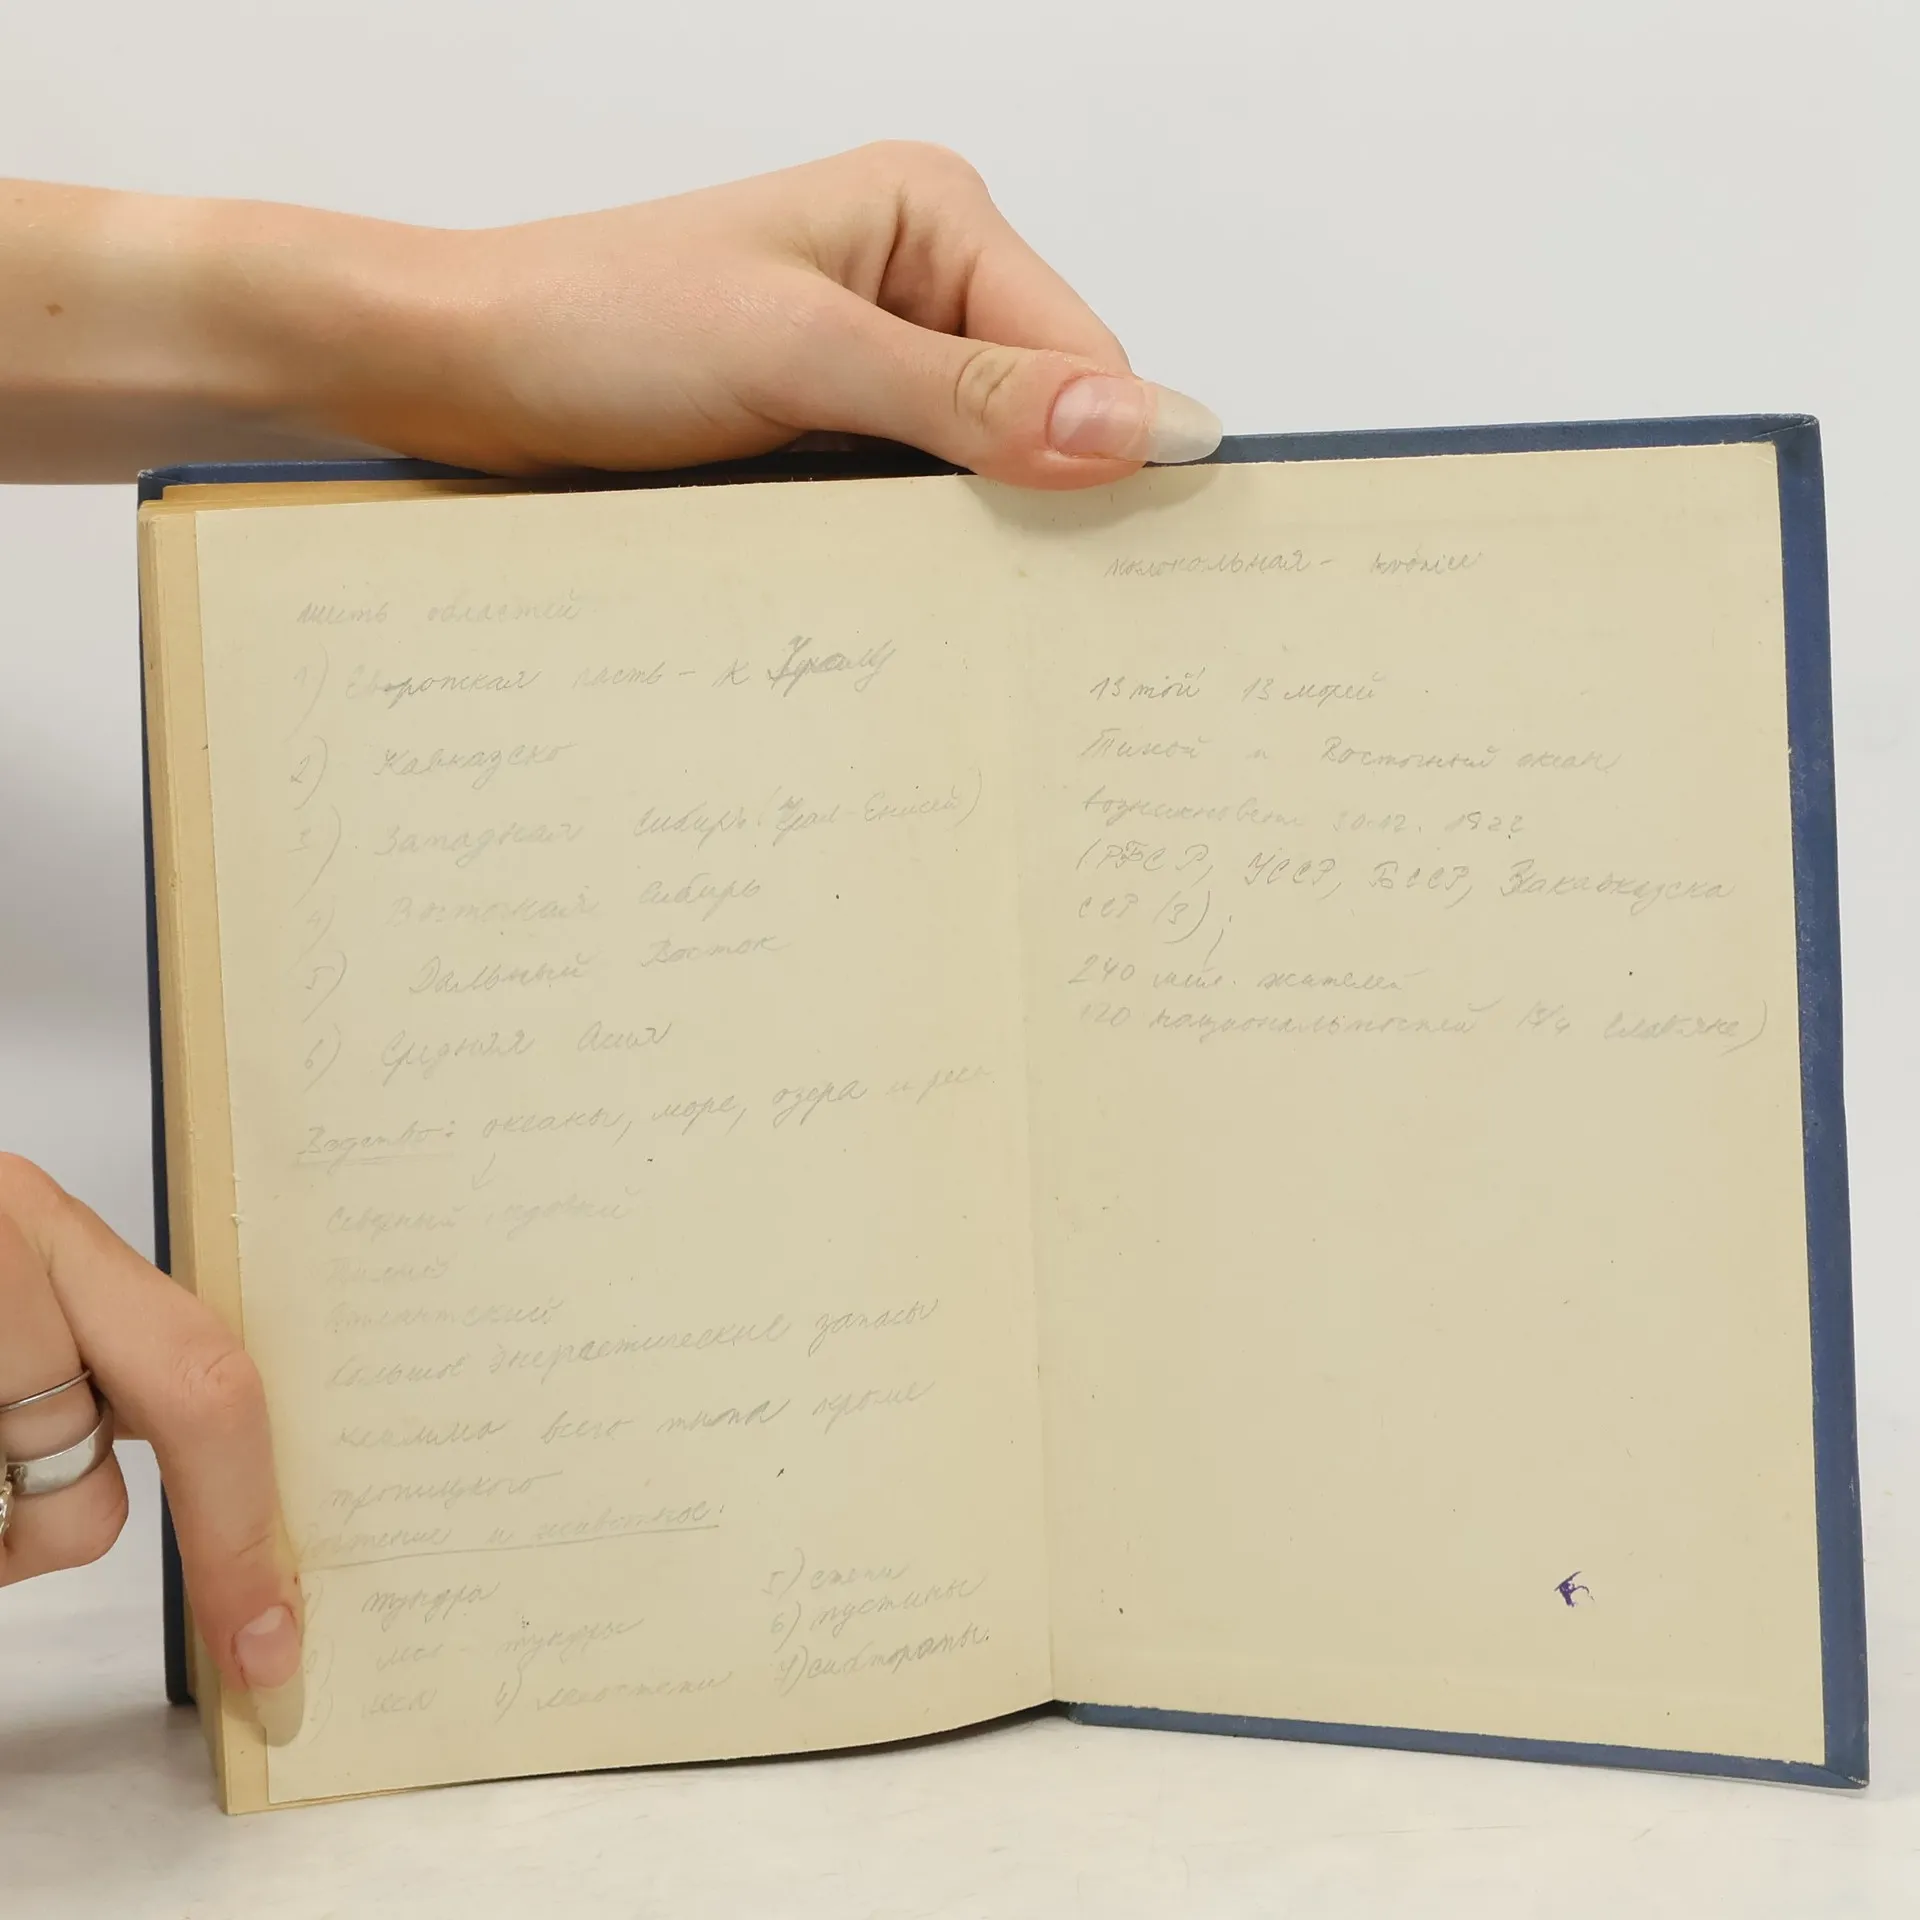 шесть областей
1) Европская часть - к Уралу
2) Кавказско
3) Западная Сибирь (Урал-Енисей)
4) Восточная Сибирь
5) Дальный Восток
6) Средняя Асия
Водство: океаны, море, озера и реки
Северный ледовый
Тихий
большое энергетические запасы
климма всего типа кроме
тропицкого
Растение и животное:
1) тундра
2) лес - тундры
3) леса 4) лесостепи
5) степи
6) пустины
7) субтропы.
колокольная -
13 той 13 морей
Тихой и Восточный океан
30.12. 1922
(РФСР, УССР, БССР, Закавказска
ССР (3)
240 мил. жителей
120 национальностей (3/4 славяне)